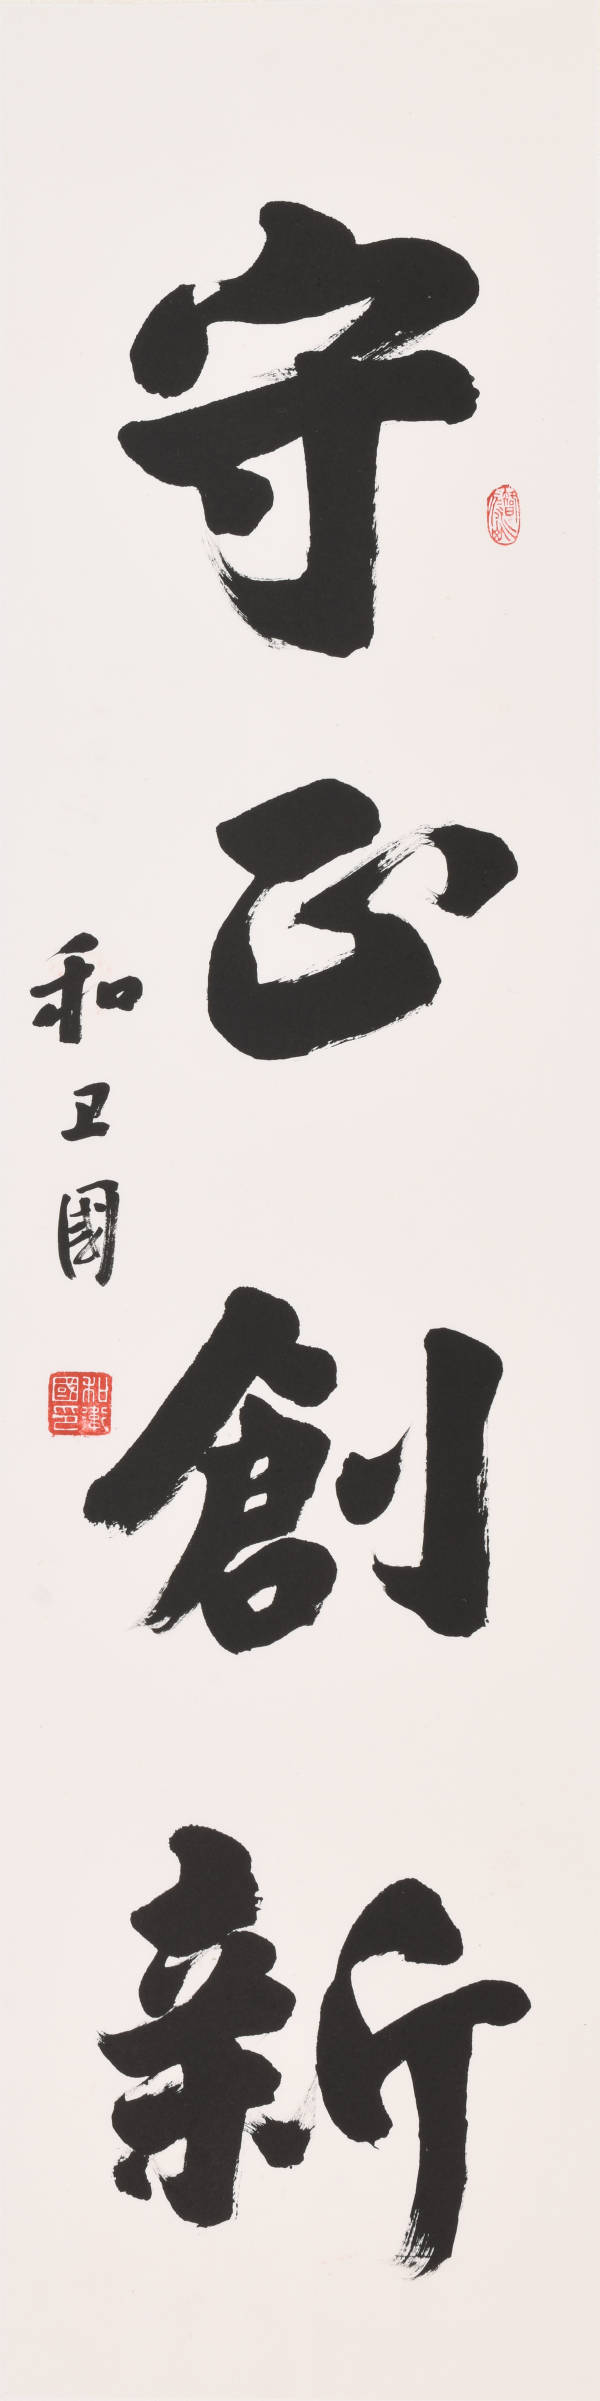 守正創新
和卫國
和衛國印